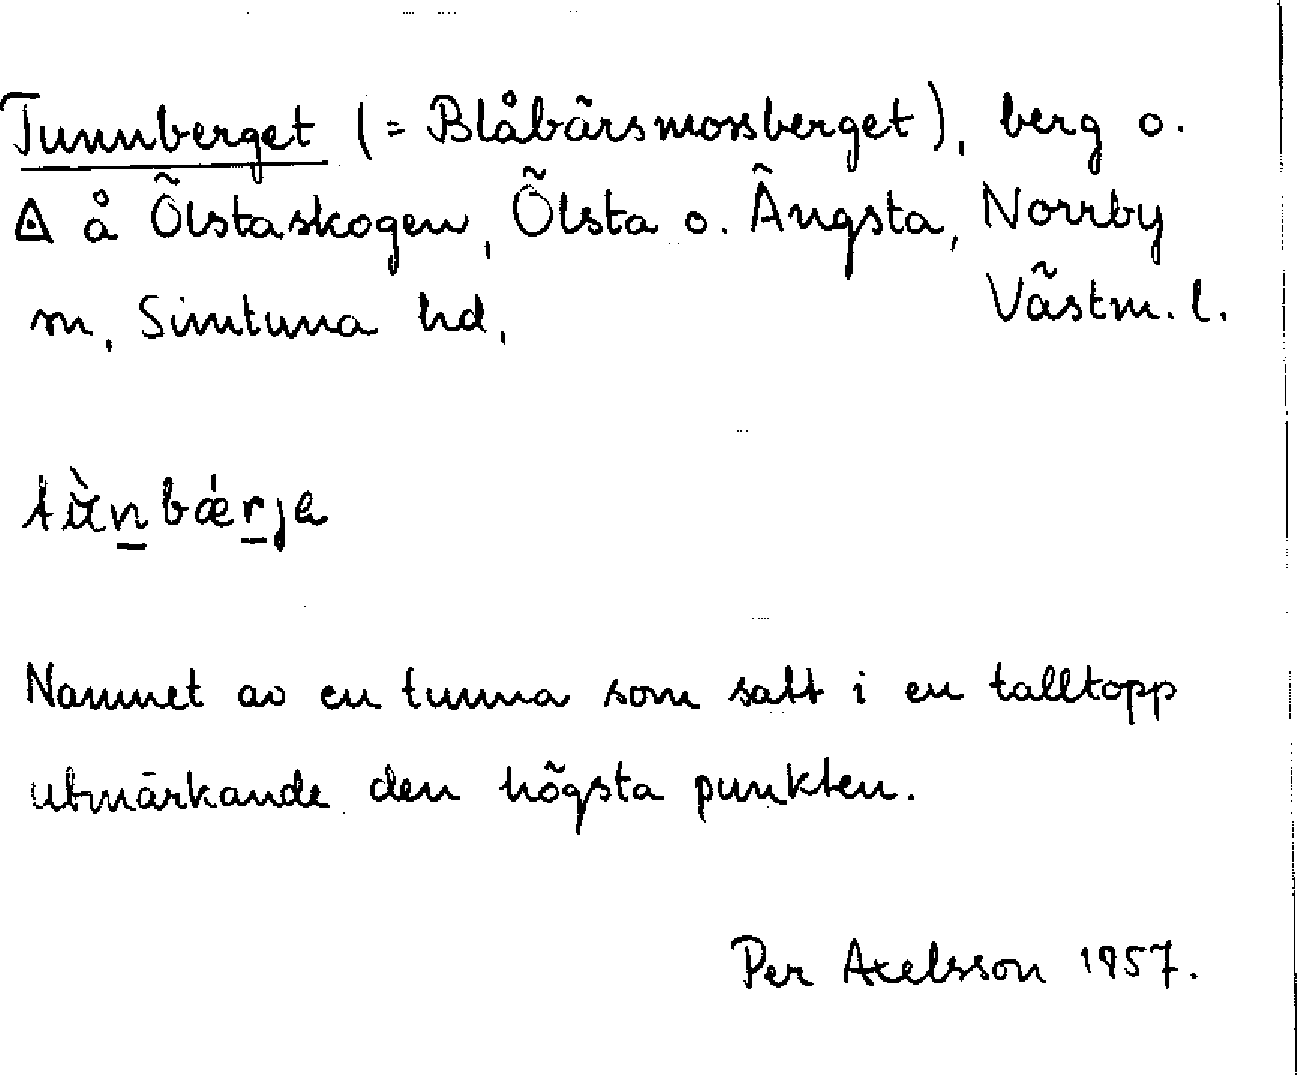 Tunnberget (= Blåbärsmossberget), berg o.
△ å Ölstaskogen, Ölsta o. Ängsta, Norrby
sn, Simtuna hd, Västm. l.
tùn̲bǽr̲ja
Namnet av en tunna som satt i en talltopp
utmärkande den högsta punkten.
Per Axelsson 1957.